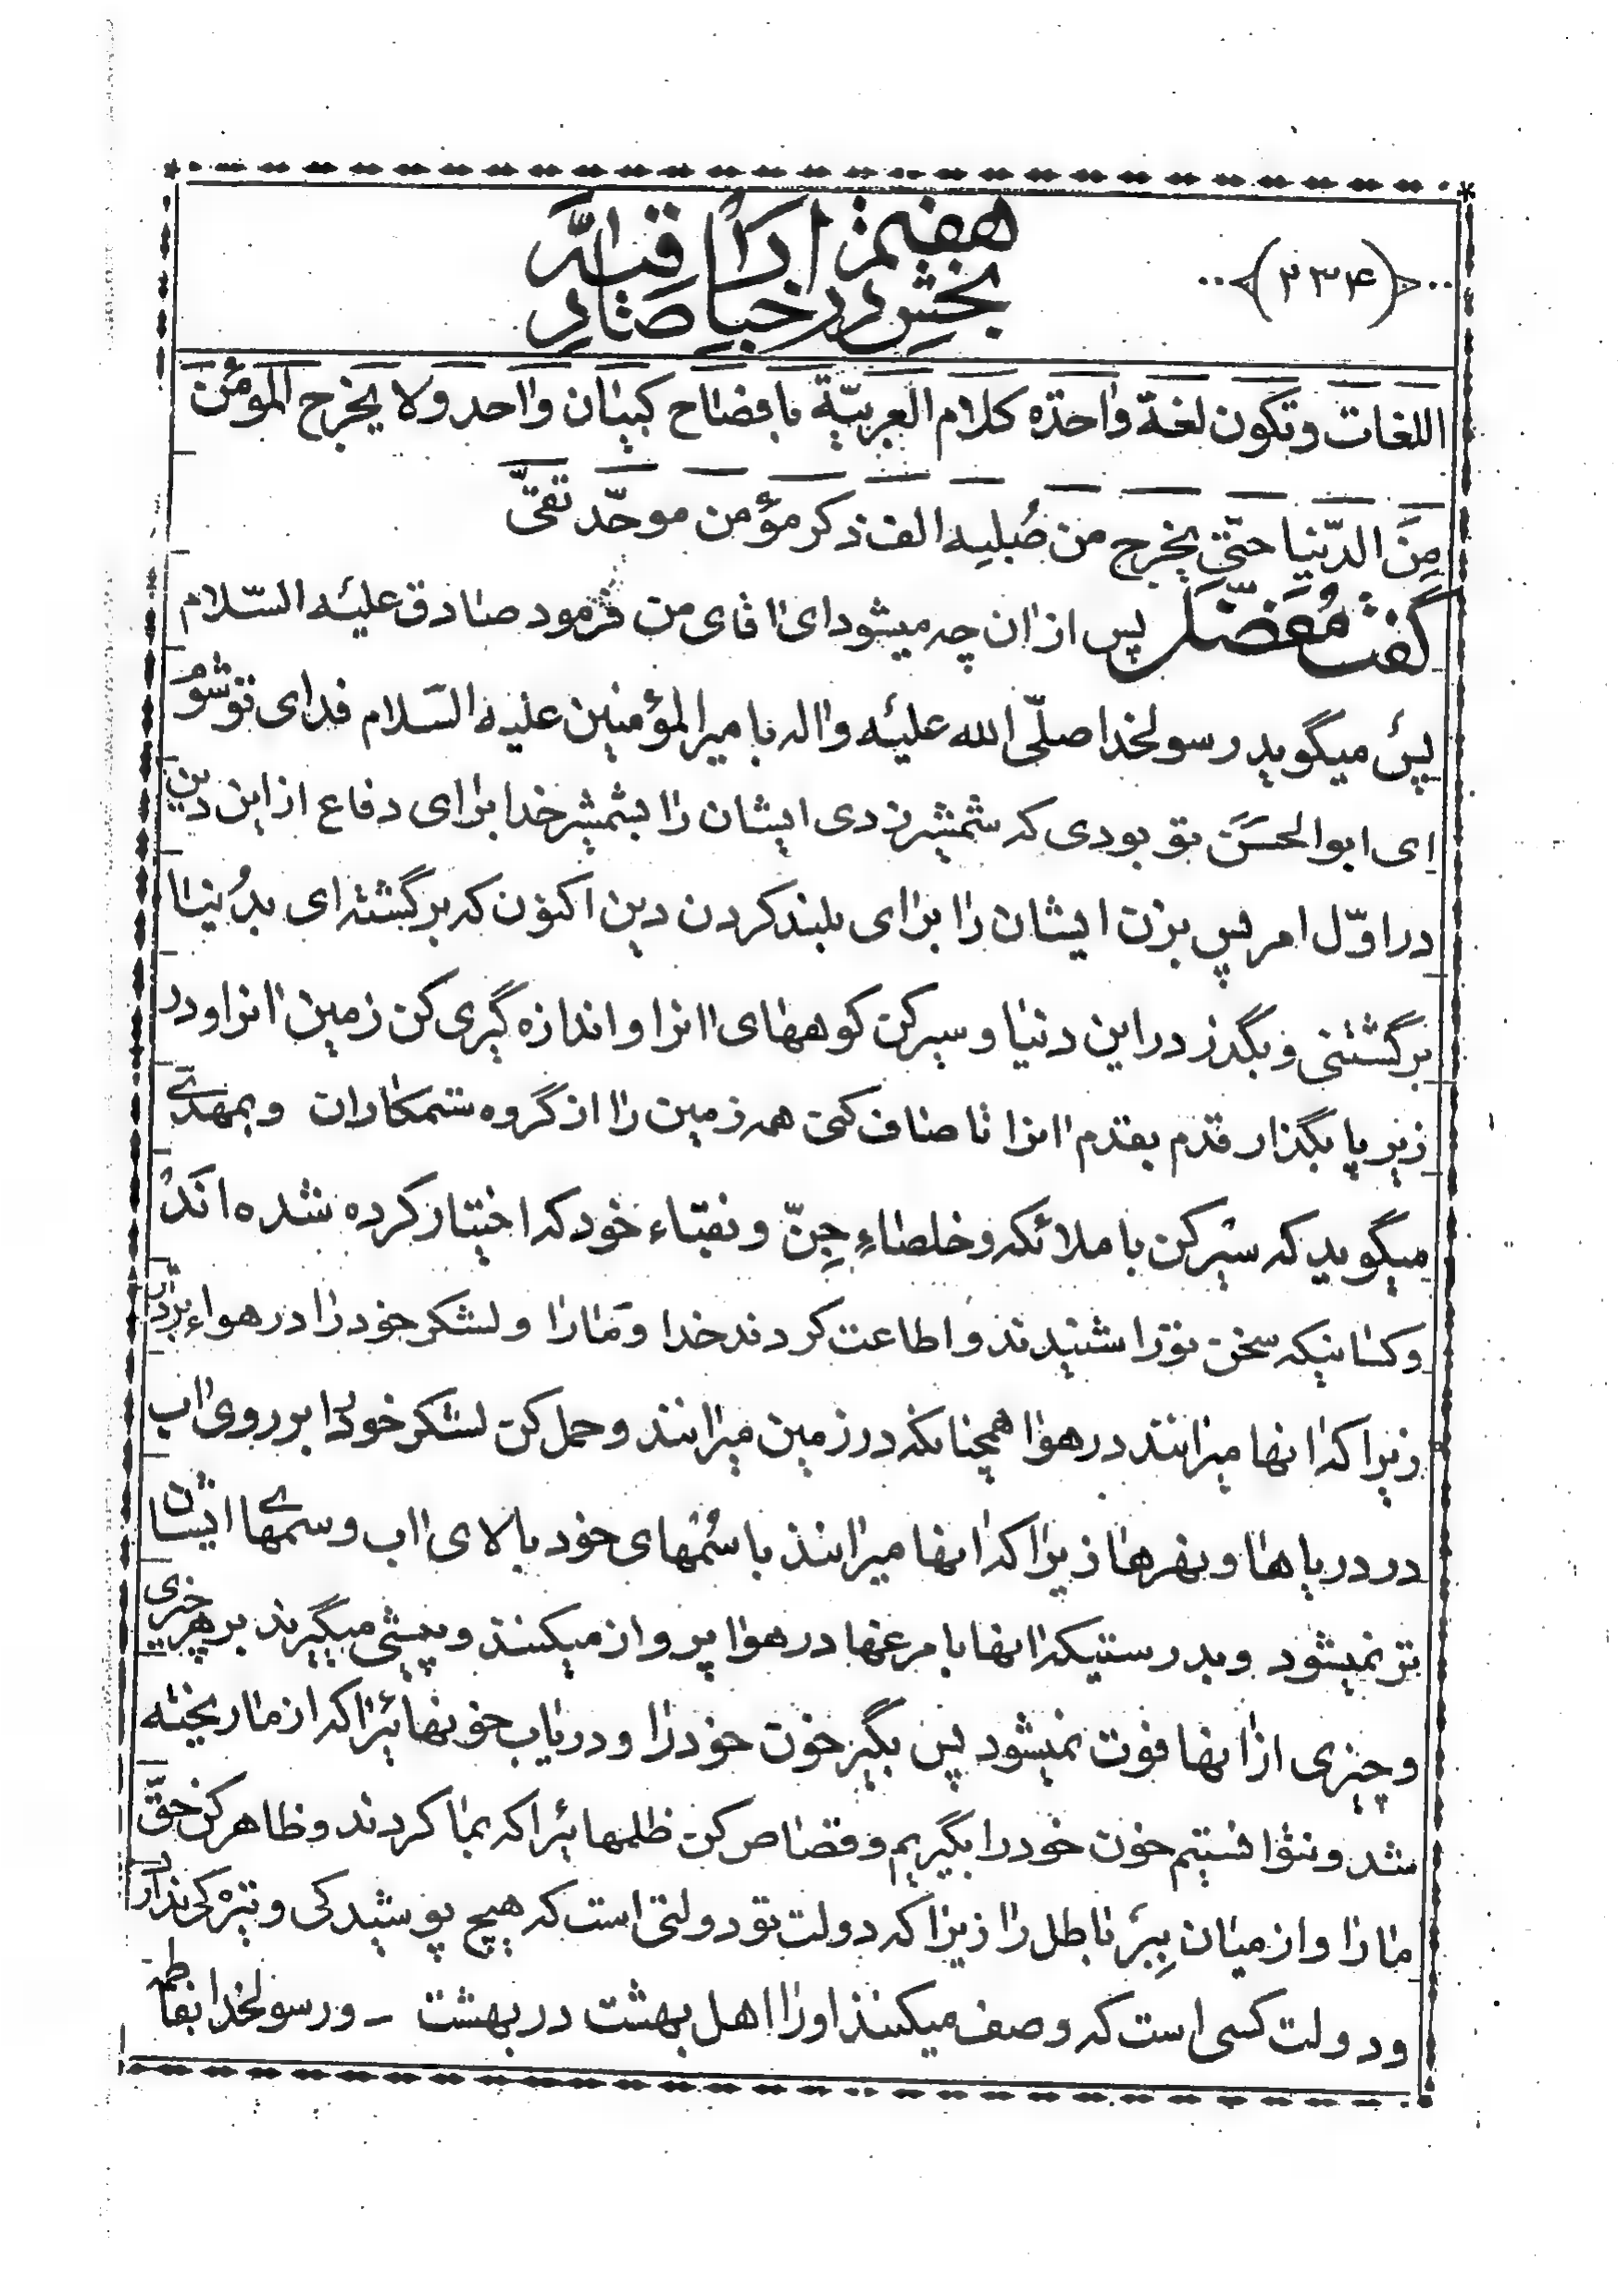 (۲۳۴)
بخش هفتم در اخبار صادقیّه
اللغات وتكون لغة واحدة كلام العربيّة بافصاح كبيان واحد ولا يخرج المؤمن
مِنَ الدّنيا حتّى يخرج من صُلبه الف ذكر مؤمن موحّد تقىّ
گفت مُفَضَّل پس از ان چه میشود ای اقای من فرمود صادق علیه السّلام
پس میگوید رسولخدا صلّی الله علیه واله بامیرالمؤمنین علیه السَلام فدای تو شوم
ای ابوالحسَن تو بودی که شمشیر زدی ایشان را بشمشیر خدا برای دفاع از این دین
در اوّل امر پس بزن ایشان را برای بلند کردن دین اکنون که برگشته ای بدُنیا
برگشتنی و بگذر در این دنیا و سیر کن کوههای انرا و اندازه گیری کن زمین انرا و در
زیر پا بگذار قدم بقدم انرا تا صاف کنی همه زمین را از گروه ستمکاران وبمهدی
میگوید که سَیر کن با ملائکه و خلصاءِ جِنّ و نقباء خود که اختیار کرده شده اند
و کسانیکه سخن تو را شنیدند و اطاعت کردند خدا و مَا را و لشکر خود را در هواء بردار
زیرا که انها میرانند در هوا همچنانکه در زمین میرانند و حمل کن لشکر خود را بر روی اب
در دریاها و نهرها زیرا که انها میرانند با سُمهای خود بالای اب و سمهای ایشان
تر نمیشود و بدرستیکه انها با مرغها در هوا پرواز میکنند و پیشی میگیرند بر هر چیزی
و چیزی از انها فوت نمیشود پس بگیر خون خود را و دریاب خونهائیرا که از ما ریخته
شد و نتوانستیم خون خود را بگیریم و قصاص کن ظلمهائیرا که بما کردند و ظاهر کن حقّ
ما را و از میان ببَر باطل را زیرا که دولت تو دولتی است که هیچ پوشیدگی و تیرگی ندارد
و دولت کسی است که وصف میکنند او را اهل بهشت در بهشت ـ و رسولخدا بفاطمه